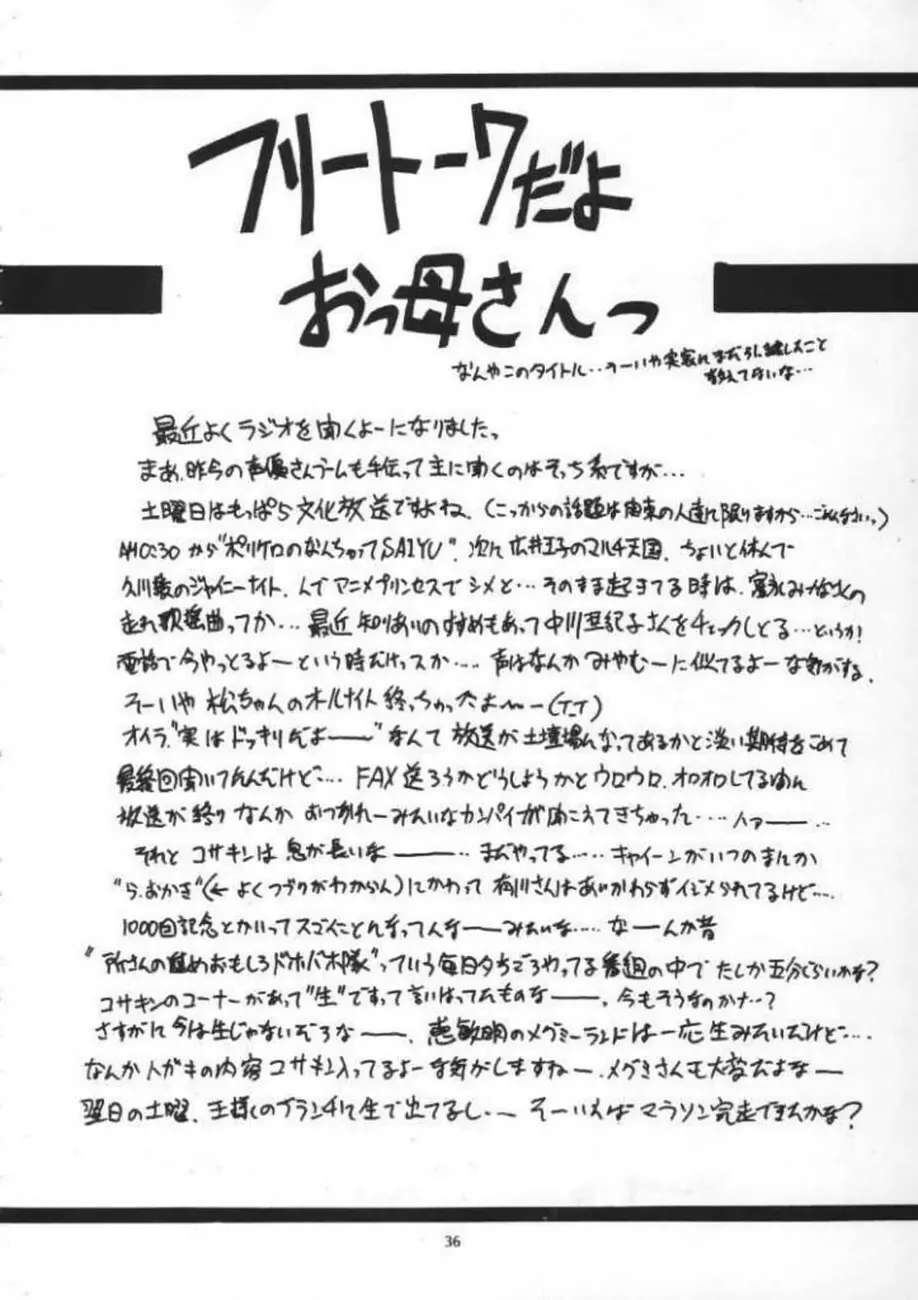 フリートークだよ
おっ母さんっ
なんやこのタイトル‥そーいや実家にまだ引っ越したこと
教えてないな…
最近よくラジオを聞くよーになりました。
まあ、昨今の声優さんブームも手伝って主に聞くのはそっち系ですが…
土曜日はもっぱら文化放送ですよね、(こっからの話題は関東の人達に限りますから…ごめんなさいっ)
AM0:30から"ポリケロのなんちゃってSAIYU"、次に広井王子のマルチ天国、ちょいと休んで
久川綾のシャイニーナイト、んでアニメプリンセスでシメと…そのまま起きてる時は、富永みーなさんの
走れ歌謡曲ってか…最近知りあいのすすめもあって中川亜紀子さんをチェックしとる…というか!
電話で今やっとるよーという時だけっスか…、声はなんかみやむーに似てるよーな気がする。
そーいや松ちゃんのオールナイト終っちゃったよ〜ー(T_T)
オイラ、"実はドッキリだよー"なんて放送が土壇場になってあるかと淡い期待をこめて
最終回聞いてたんだけど…FAX送ろうかどうしようかとウロウロ、オロオロしてるめん
放送が終りなんかおつかれーみたいなカンパイが聞こえてきちゃった‥‥ハァー…
それとコサキンは息が長いなー‥まだやってる…キャイーンがいつのまんか
"ら・おかき"(←よくつづりがわからん)にかわって有川さんはあいかわらずイジメられてるけど…
1000回記念とかいってスゴイことんなってんなーみたいな…なーんか昔
"所さんの進めおもしろドホバホ隊"っていう毎日夕ちごろやってる番組の中でたしか五分くらいかな?
コサキンのコーナーがあって"生"ですって言いはってたものなー、今もそうなのかナ‥?
さすがに今は生じゃないだろなー、恵敏明のメグミーランドは一応生みたいだけど…
なんかハガキの内容コサキン入ってるよーな気がしますねー、メグミさんも大変だよなー
翌日の土曜、王様のブランチにて生で出てるし、ー そーいえばマラソン完走できたかな?
36